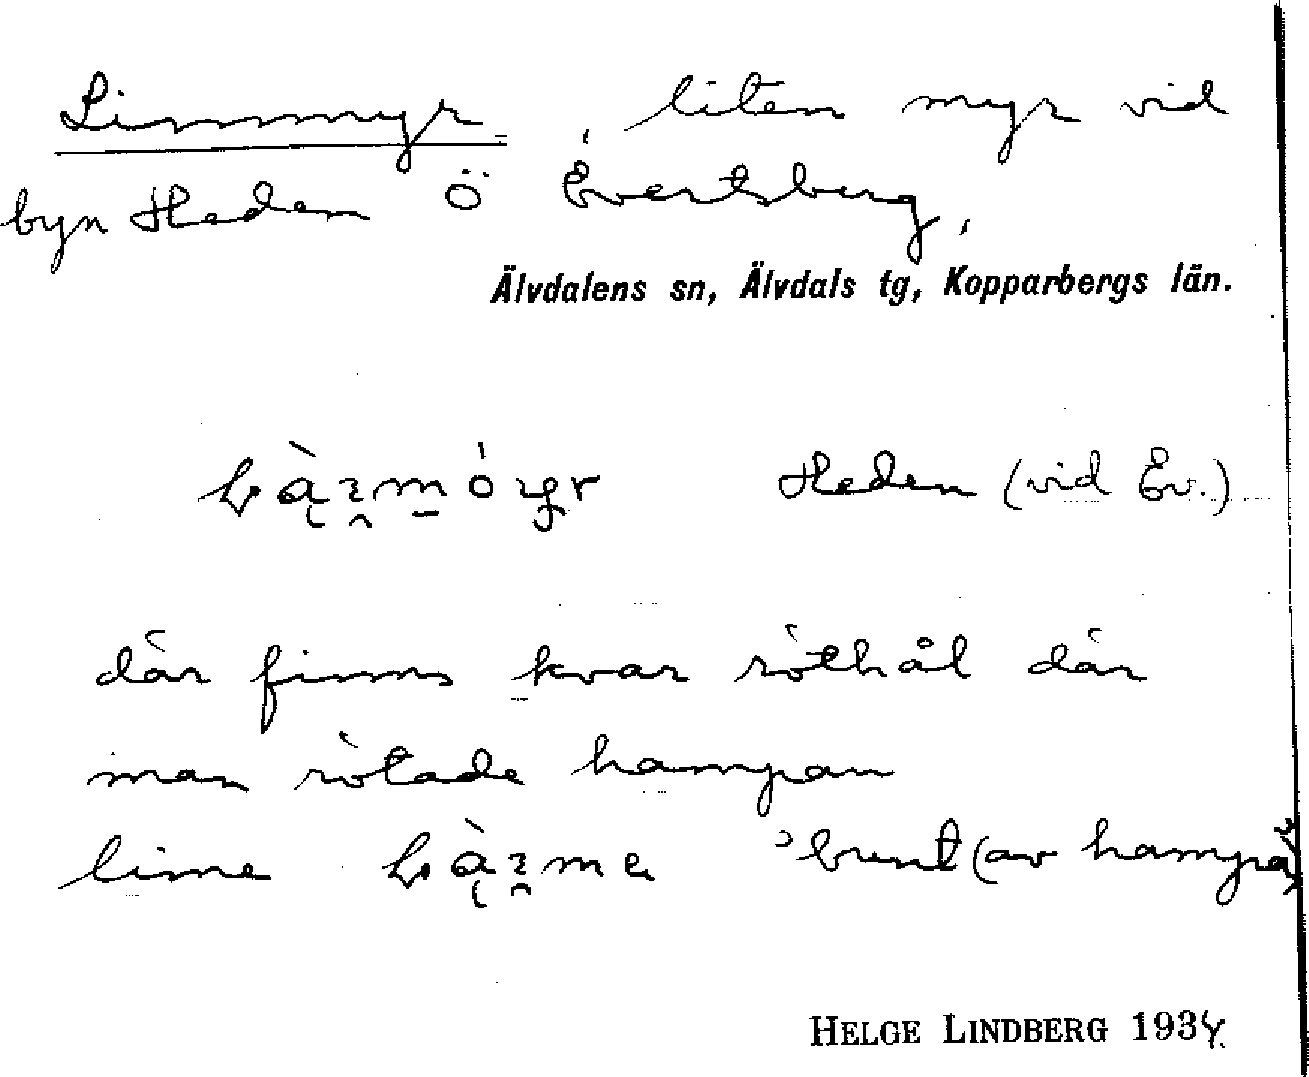 Limmyr, liten myr vid
byn Heden Ö Evertsberg,
Älvdalens sn, Älvdals tg, Kopparbergs län.
Heden (vid Ev.)
där finns kvar röthål där
man rötade hampan
lime ’bunt (av hampa)’
HELGE LINDBERG 1934.